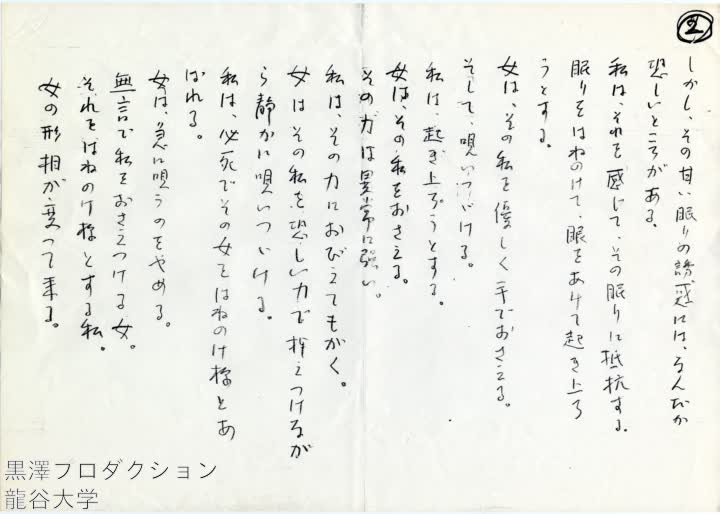 ②
しかし、その甘い眠りの誘惑には、なんだか
恐しいところがある。
私は、それを感じて、その眠りに抵抗する。
眠りをはねのけて、眼をあけて起き上ろ
うとする。
女は、その私を優しく手でおさえる。
そして、唄いつゞける。
私は、起き上ろうとする。
女は、その私をおさえる。
その力は異常に強い。
私は、その力におびえてもがく。
女はその私を恐しい力で押えつけなが
ら静かに唄いつゞける。
私は、必死でその女をはねのけ様とあ
ばれる。
女は、急に唄うのをやめる。
無言で私をおさえつける女。
それをはねのけ様とする私。
女の形相が変って来る。
黒澤プロダクション
龍谷大学